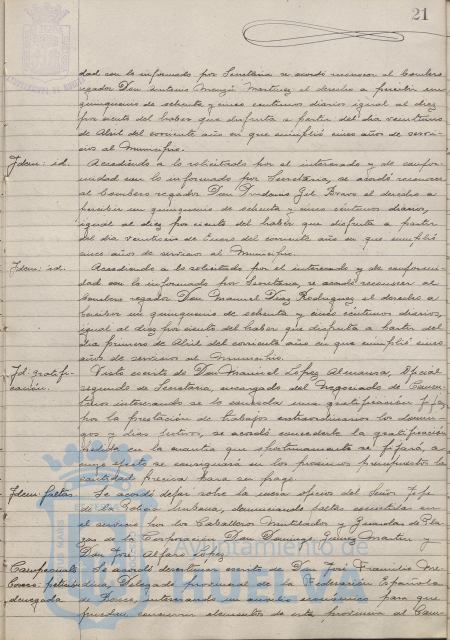 21
dad con lo informado por Secretaría se acordó reconocer al Bombero
regador Don Antonio Monzú Martínez el derecho a percibir un
quinquenio de setenta y cinco céntimos diarios igual al diez
por ciento del haber que disfruta a partir del día veintiuno
de Abril del corriente año en que cumplió cinco años de servi-
cios al Municipio.
Idem: id. Accediendo a lo solicitado por el interesado y de confor-
midad con lo informado por Secretaría, se acordó reconocer
al Bombero regador Don Gil Bravo el derecho a
percibir un quinquenio de setenta y cinco céntimos diarios,
igual al diez por ciento del haber que disfruta a partir
del día veinticinco de Enero del corriente año en que cumplió
cinco años de servicios al Municipio.
Idem: id. Accediendo a lo solicitado por el interesado y de conformi-
dad con lo informado por Secretaría, se acordó reconocer al
Bombero regador Don Manuel Diaz Rodriguez el derecho a
percibir un quinquenio de setenta y cinco céntimos diarios,
igual al diez por ciento del haber que disfruta a partir del
día primero de Abril del corriente año en que cumplió cinco
años de servicios al Municipio.
Id: gratifi-
cación. Visto escrito de Don Manuel Lopez Almansa, Oficial
segundo de Secretaría, encargado del Negociado de
interesando se le conceda una gratificación fija
por la prestación de trabajos extraordinarios los domin-
gos y días festivos, se acordó concederle la gratificación
pedida en la cuantía que oportunamente se fijará, a
cuyo efecto se consignará en los proximos presupuestos la
cantidad precisa para su pago.
Idem: faltas Se acordó dejar sobre la mesa oficios del Señor Jefe
de la Policía Urbana, denunciando faltas cometidas en
el servicio por los Caballeros Mutilados y Guardas de Pla-
zas de la Corporación Don Domingo Gómez Martín y
Don José Alfaro López
Campeonato
Boxeo: petición
denegada Se acordó desestimar escrito de Don José Francisco Me-
dina, Delegado provincial de la Federación Española
de Boxeo, interesando un auxilio económico para que
puedan concurrir elementos de esta provincia al Cam-
Ayuntamiento de